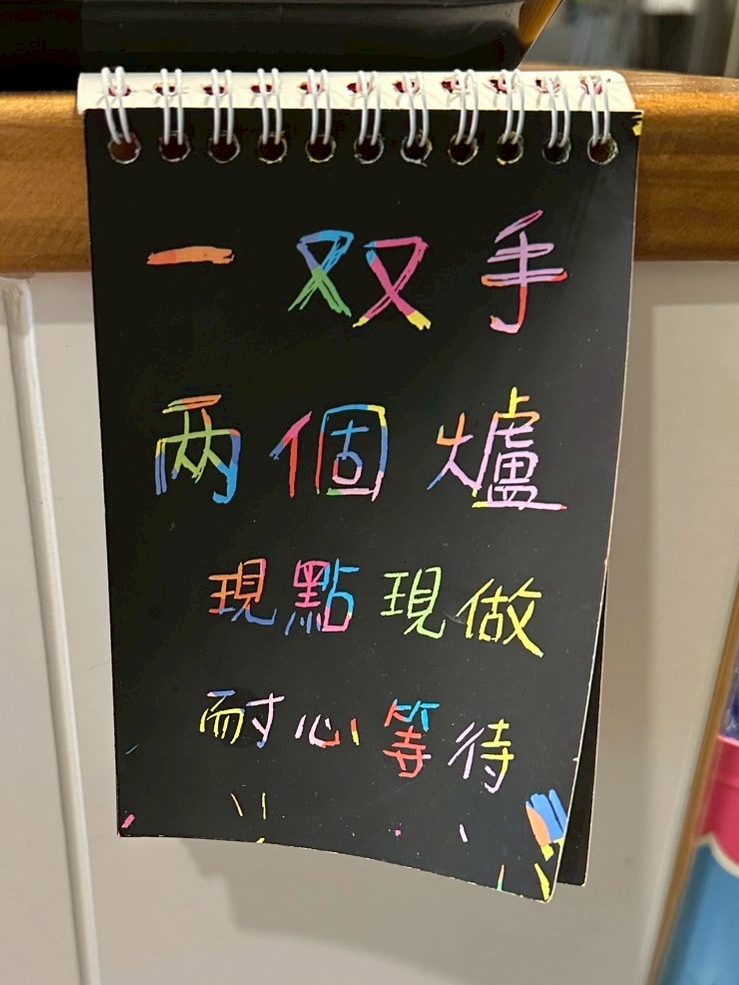 一双手
两個爐
現點現做
耐心等待